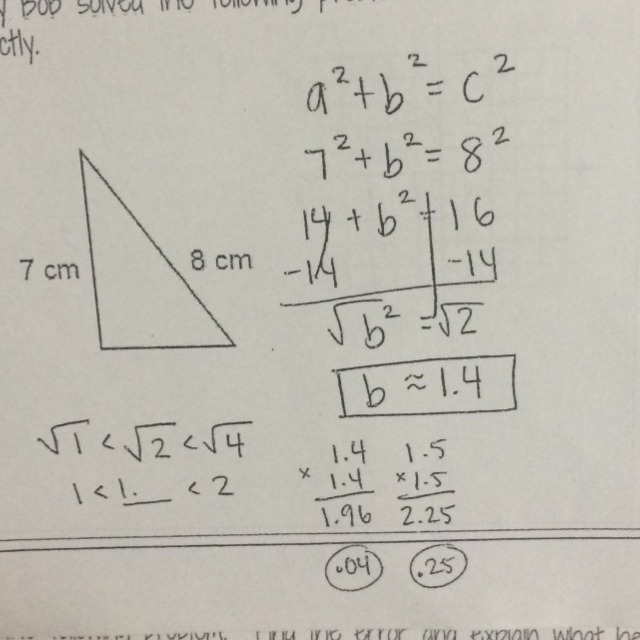 Bob solved the following
ctly.
a² + b² = c²
7² + b² = 8²
14 + b² = 16
-14 -14
√b² = √2
b ≈ 1.4
7 cm
8 cm
√1 < √2 < √4
1 < 1.__ < 2
1.4 1.5
× 1.4 × 1.5
1.96 2.25
.04 .25
problem. Find the error and explain what